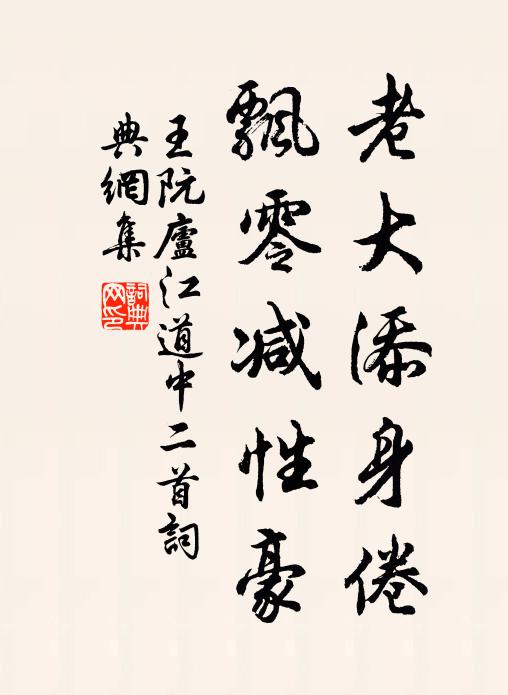 老大添身倦
飄零减性豪
王阮廬江道中二首詞
典網集
詞典
网印